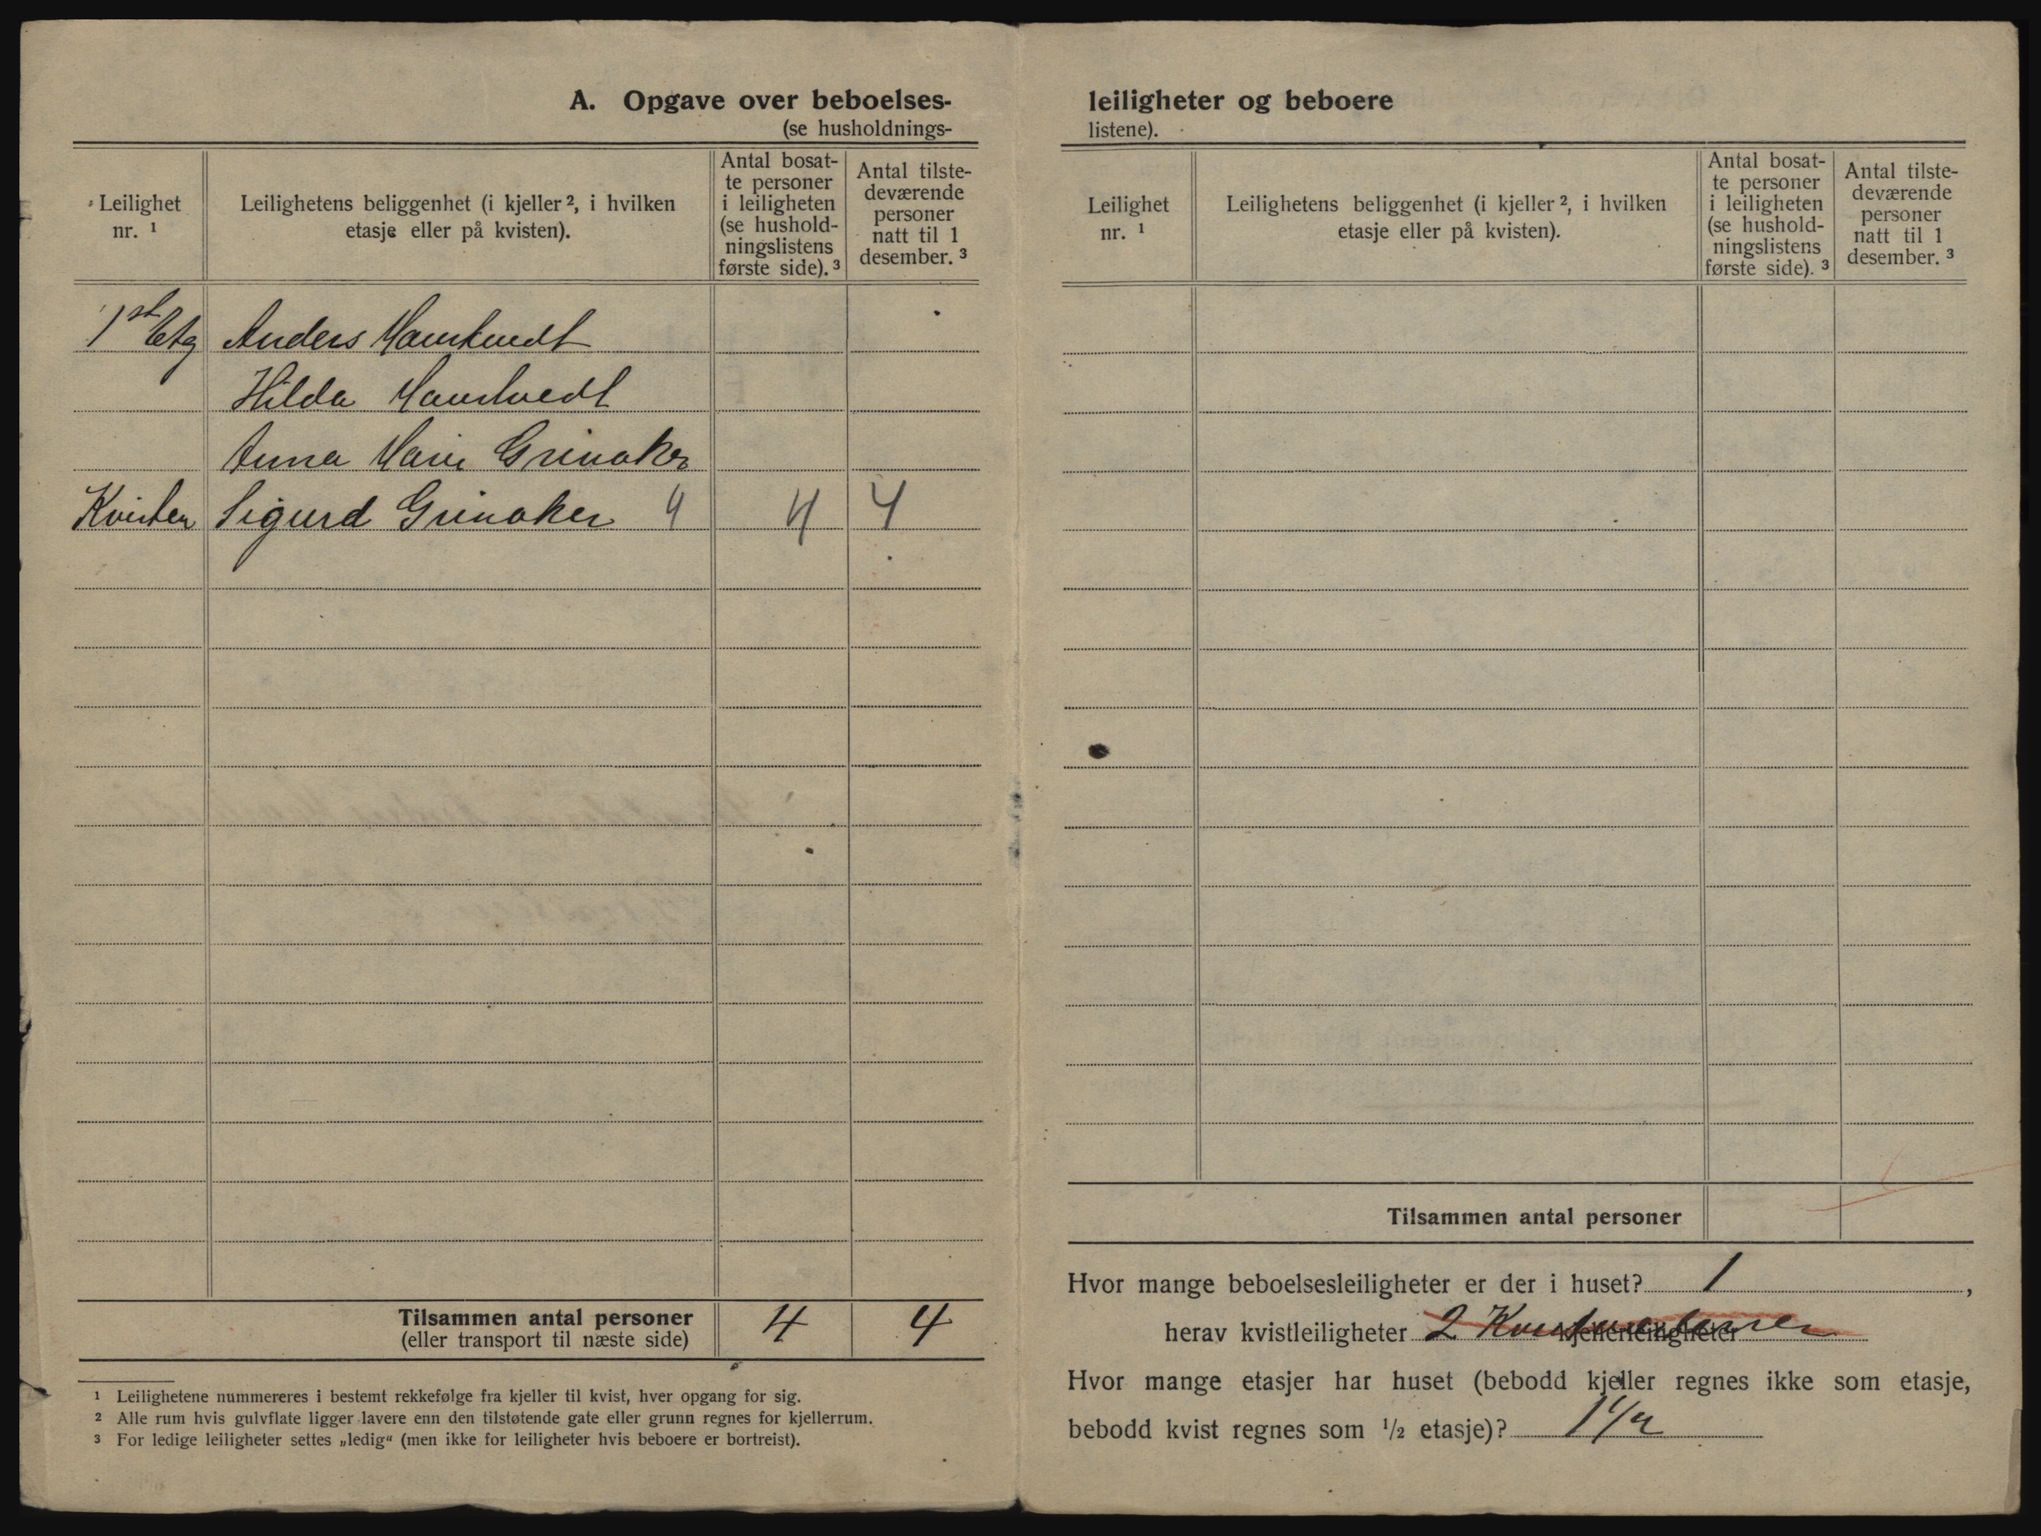 A. Opgave over beboelses-
(se husholdnings-
Leilighet nr. ¹
Leilighetens beliggenhet (i kjeller ², i hvilken etasje eller på kvisten).
Antal bosat-
te personer
i leiligheten
(se hushold-
ningslistens
første side). ³
Antal tilste-
deværende
personer
natt til 1
desember. ³
1st Etg Anders Haustvedt
Hilda Haustvedt
Anna Marie Grinaker
Kvisten Sigurd Grinaker 4 4 4
Tilsammen antal personer 4 4
(eller transport til næste side)
¹ Leilighetene nummereres i bestemt rekkefølge fra kjeller til kvist, hver opgang for sig.
² Alle rum hvis gulvflate ligger lavere enn den tilstøtende gate eller grunn regnes for kjellerrum.
³ For ledige leiligheter settes „ledig“ (men ikke for leiligheter hvis beboere er bortreist).
leiligheter og beboere
listene).
Leilighet nr. ¹
Leilighetens beliggenhet (i kjeller ², i hvilken etasje eller på kvisten).
Antal bosat-
te personer
i leiligheten
(se hushold-
ningslistens
første side). ³
Antal tilste-
deværende
personer
natt til 1
desember. ³
Tilsammen antal personer
Hvor mange beboelsesleiligheter er der i huset? 1,
herav kvistleiligheter 2 kjellerleiligheter
Hvor mange etasjer har huset (bebodd kjeller regnes ikke som etasje,
bebodd kvist regnes som ½ etasje)? 1 1/2